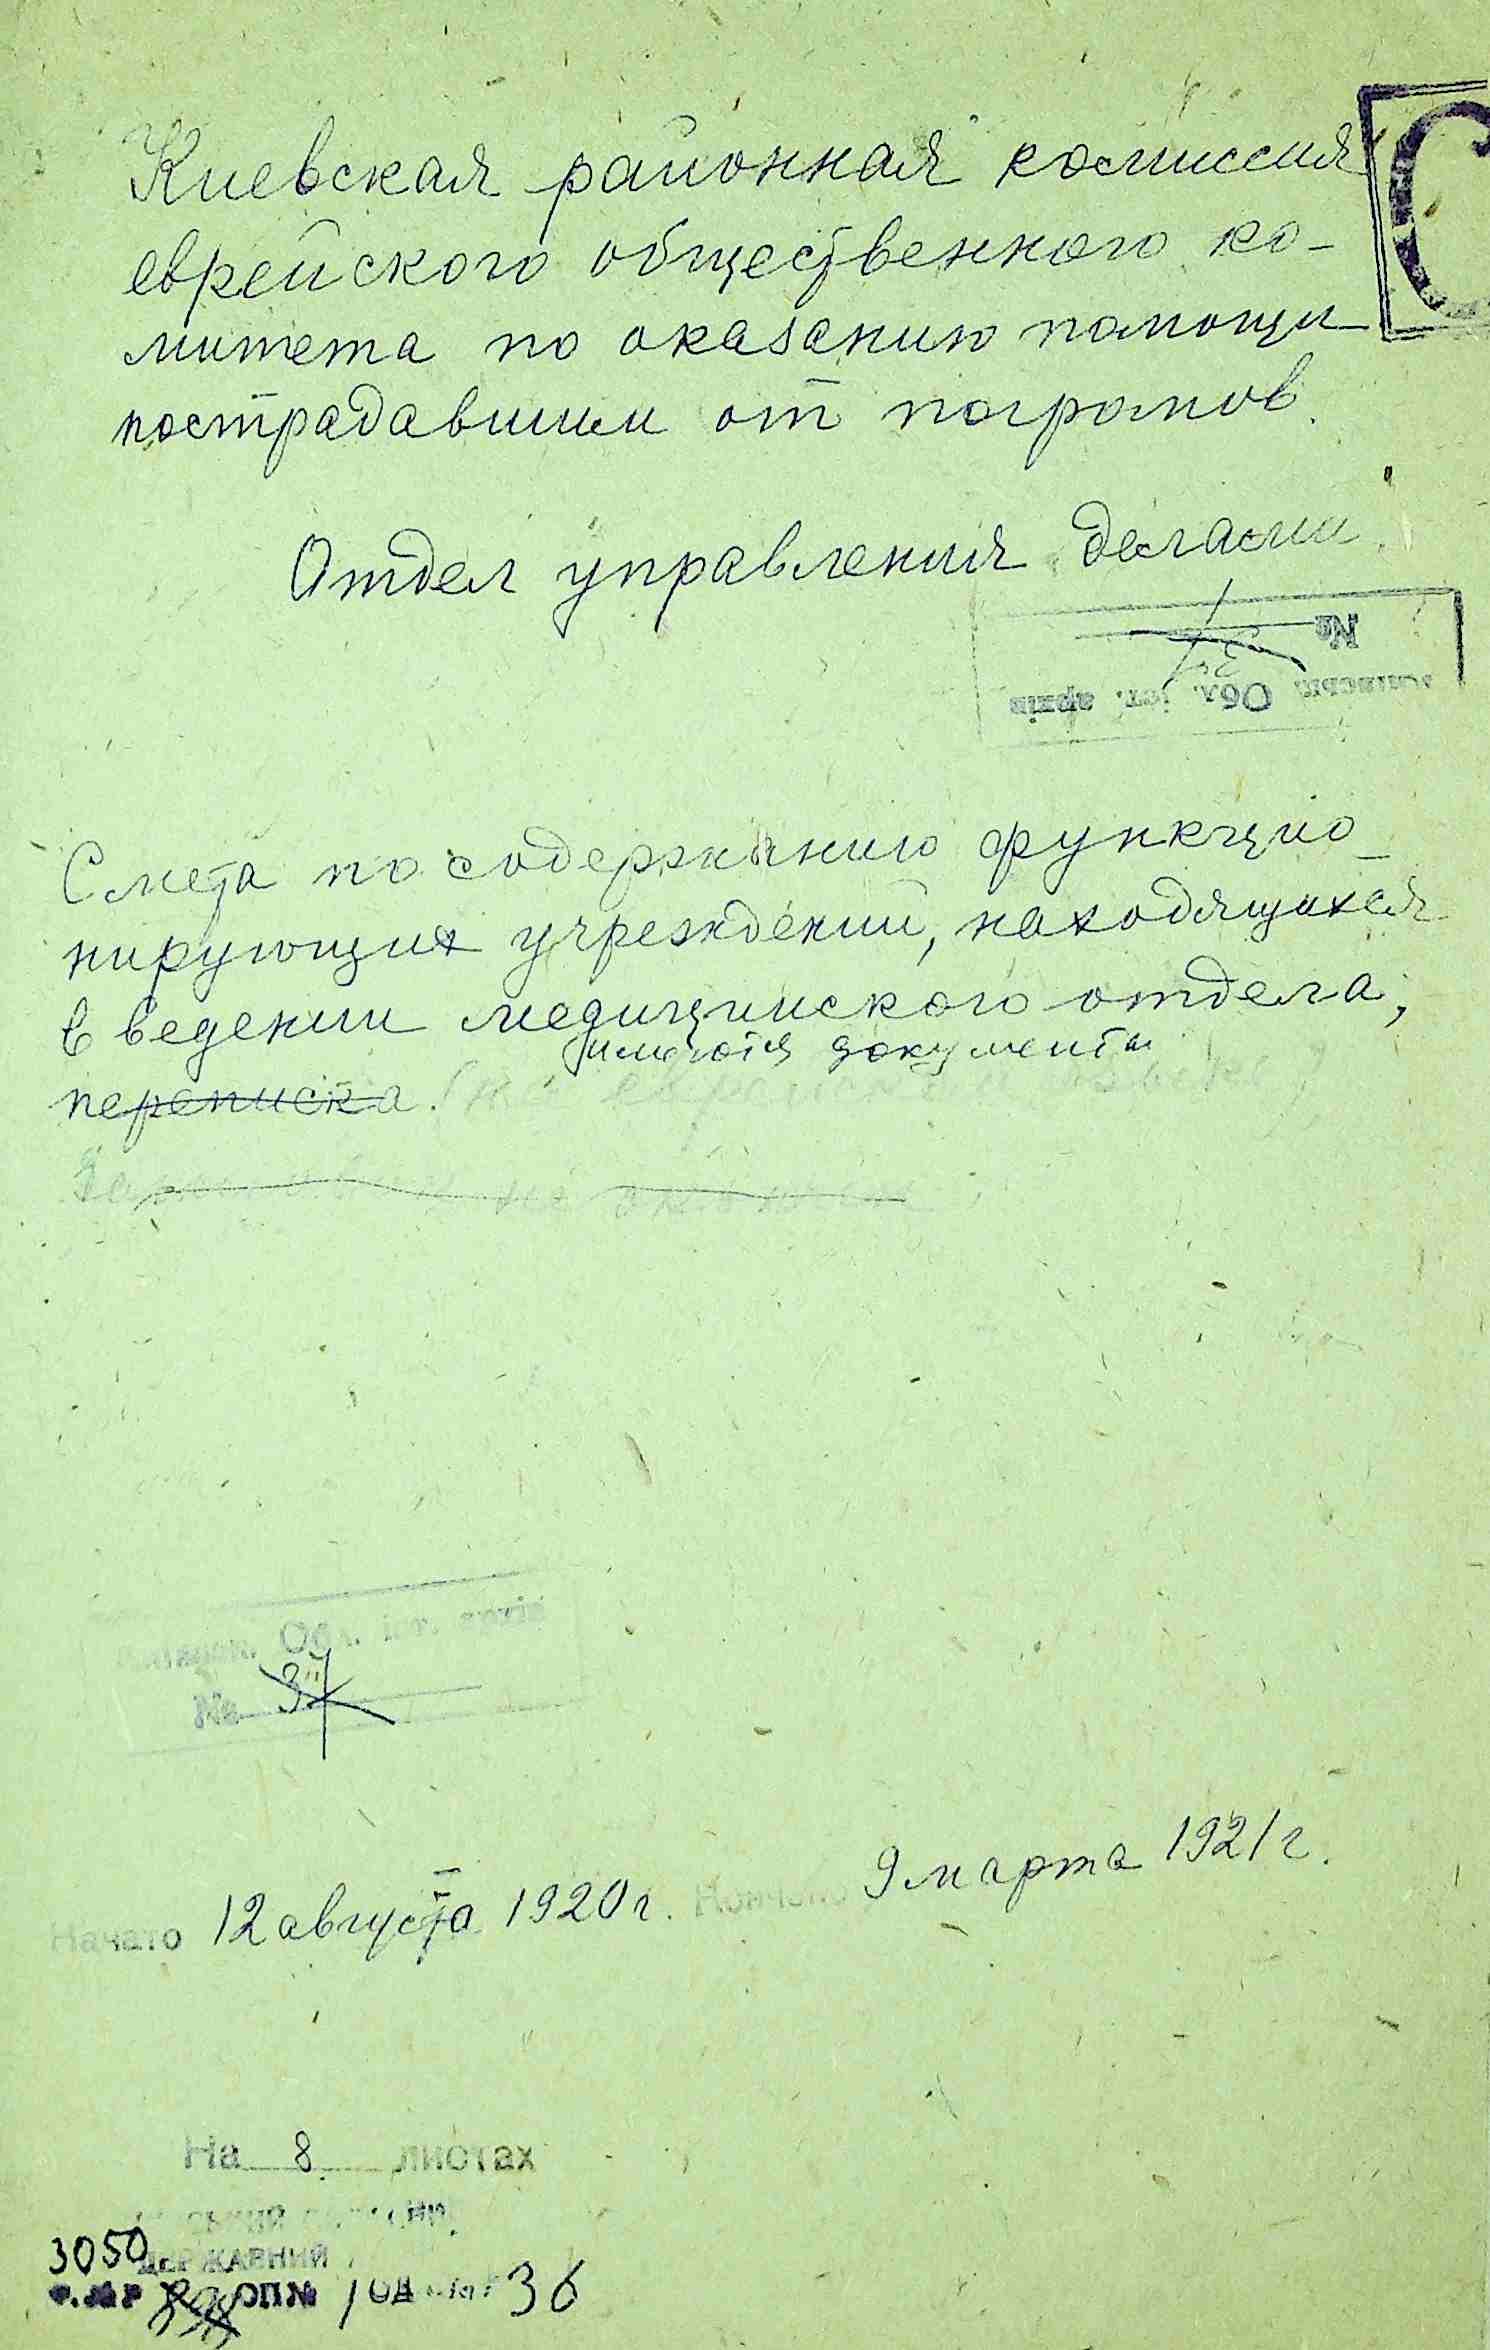 Киевская районная комиссия
еврейского общественного ко-
митета по оказанию помощи
пострадавшим от погромов.
Отдел управления делами
№
Обл. іст. архів
Смета по содержанию функцио-
нирующих учреждений, находящихся
в ведении медицинского отдела,
имеются документы
переписка. (на еврейском языке)
Обл. іст. архів
№ 37
Начато 12 августа 1920 г. Кончено 9 марта 1921 г.
На 8 листах
3050
ДЕРЖАВНИЙ
Ф. № Р ОП № 1 од. зб. 36